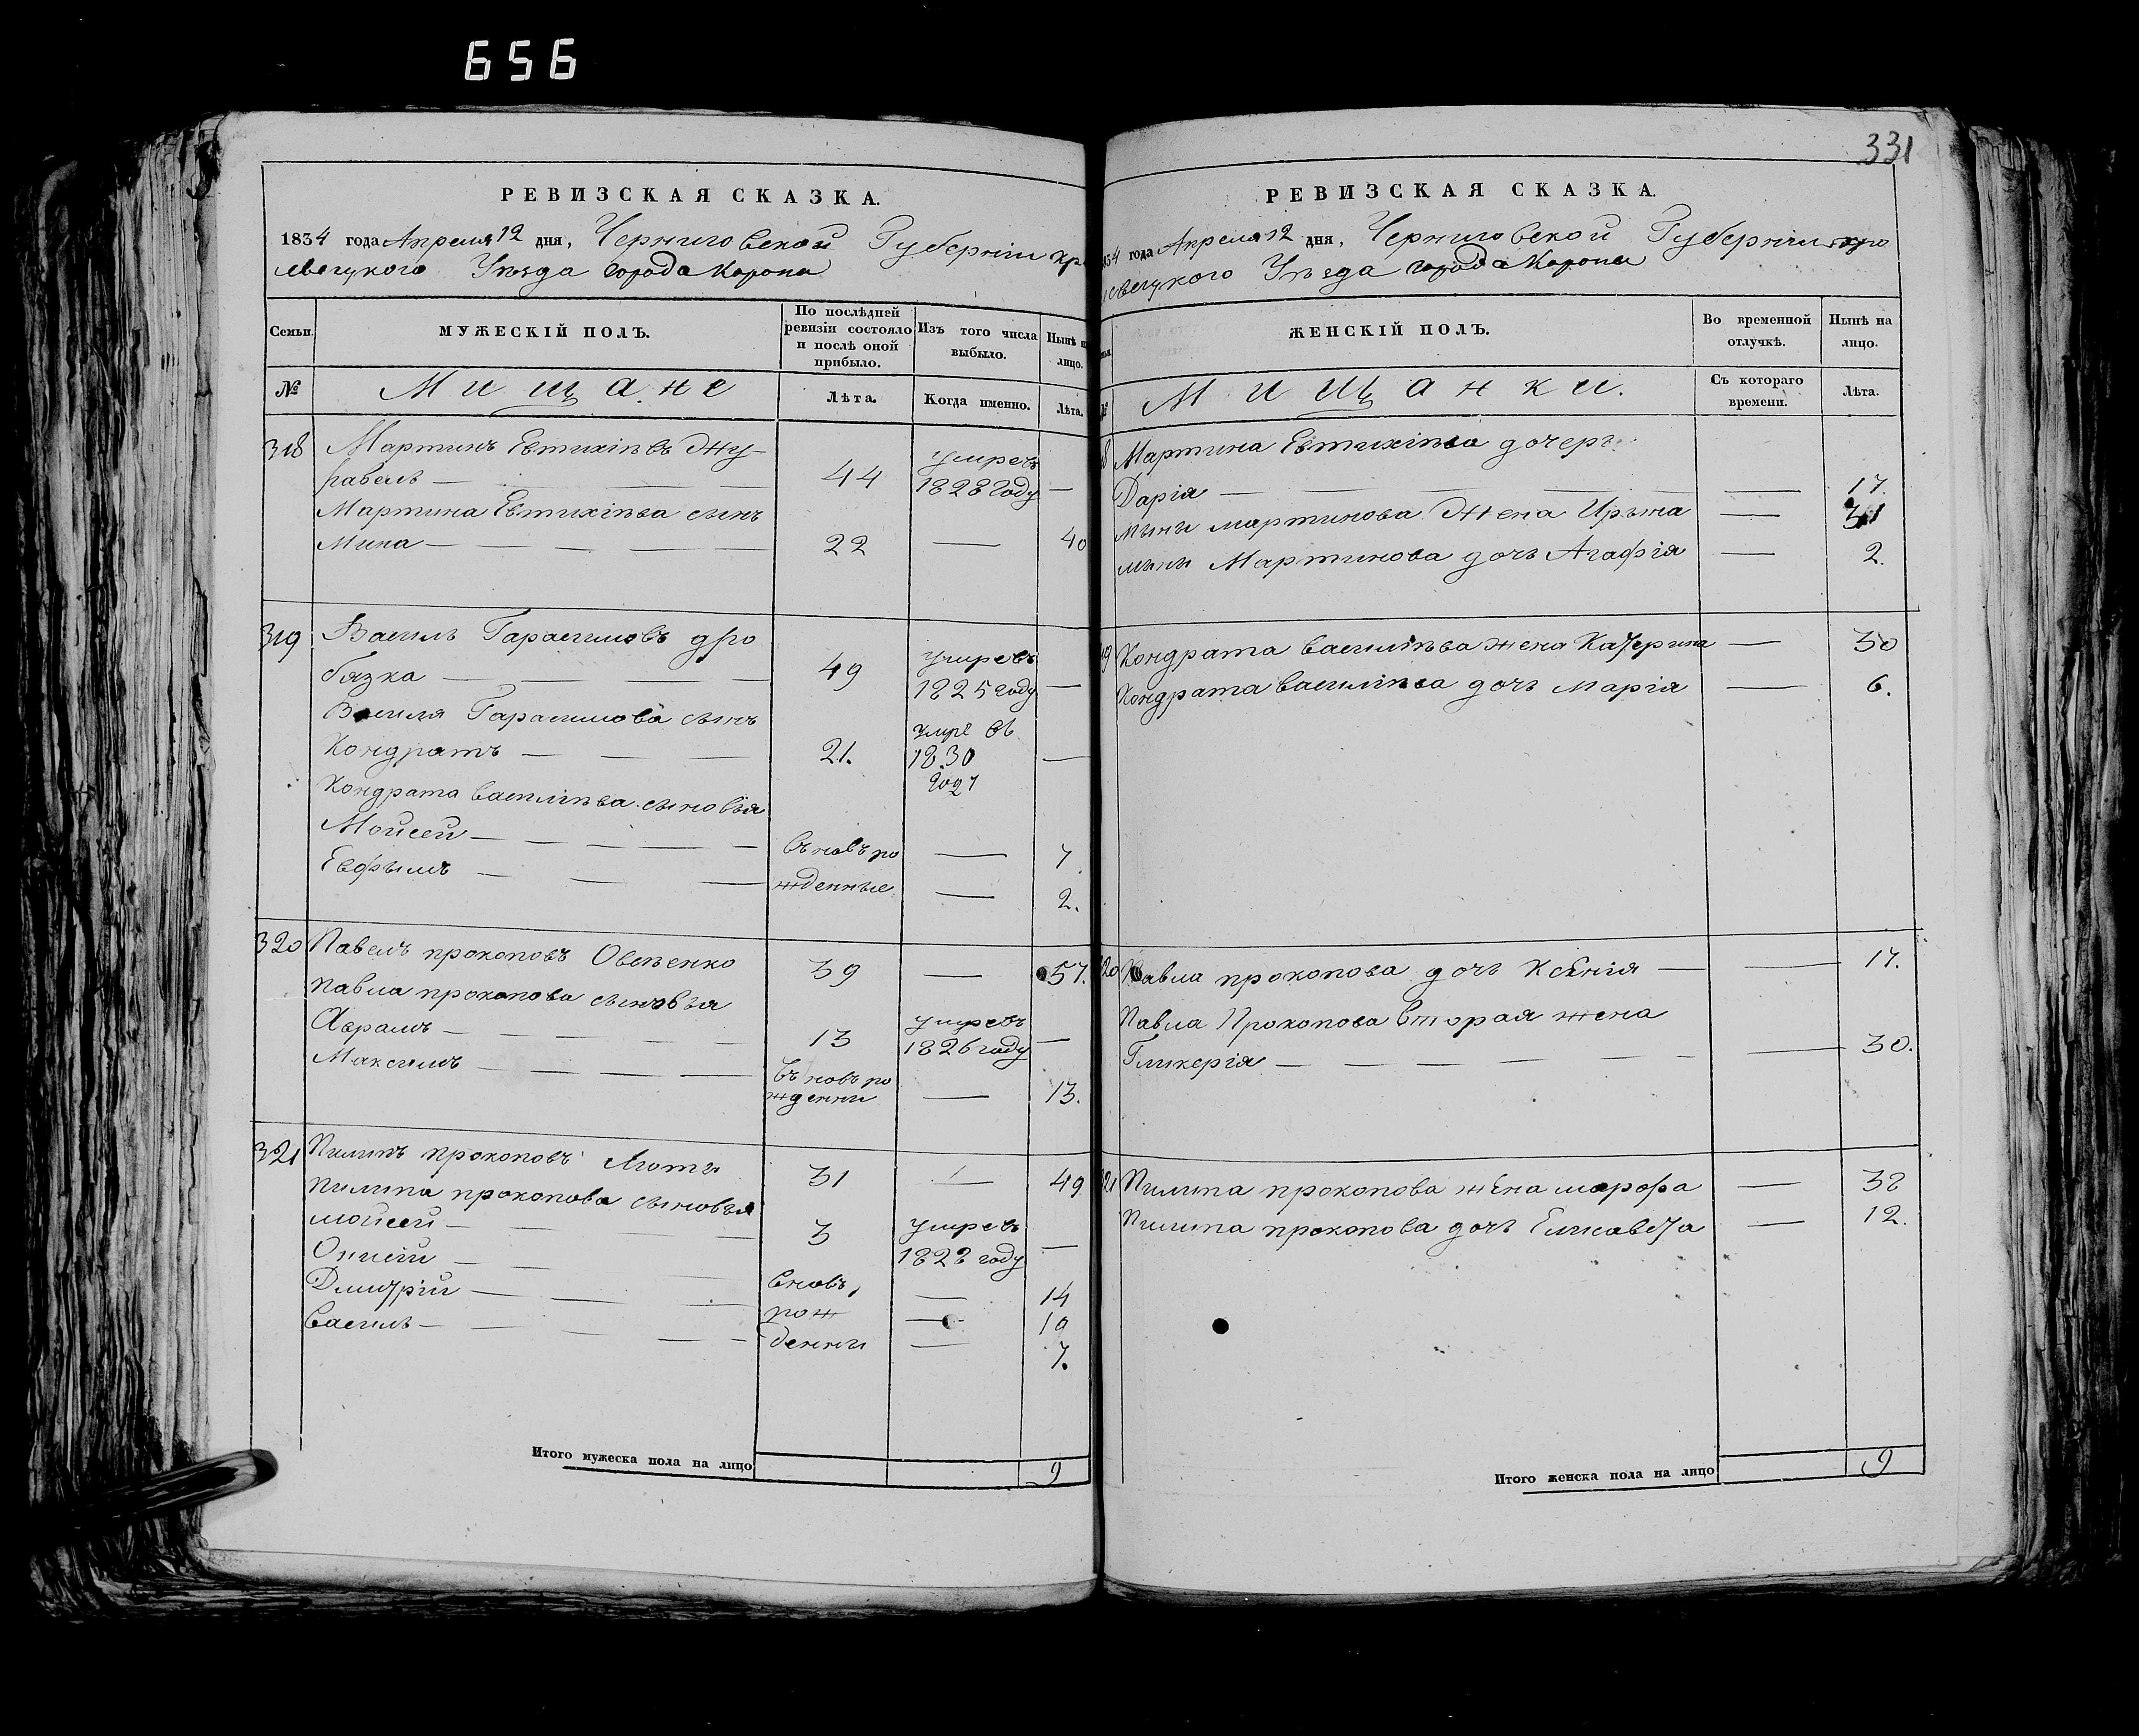 656
РЕВИЗСКАЯ СКАЗКА.
1834 года Апреля 12 дня, Черниговской Губерніи кро
левецкого Уѣзда города Коропа
Семьи.
МУЖЕСКІЙ ПОЛЪ.
По послѣдней ревизіи состояло и послѣ оной прибыло.
Изъ того числа выбыло.
Нынѣ на лицо.
№
Мищане
Лѣта.
Когда именно.
Лѣта.
318 Мартинъ Евтихіевъ Жу-
равель — 44 умре въ 1828 году —
Мартина Евтихіева сынъ
Мина — 22 — 40
319 Василь Гарасимовъ дро
бязка — 49 умре въ 1825 году —
Василя Гарасимова сынъ
Кондратъ — 21. умре въ 1830 году —
Кондрата василіева сыновья
Мойсей — вновь ро — 7.
Евфимъ — жденные — 2.
320 Павелъ прокоповъ Овсѣенко 39 — 57.
павла прокопова сыновья
Аврамъ — 13 умре въ 1826 году —
Максимъ — вновь ро
жденни — 13.
321 Пилипъ прокоповъ Люты 31 — 49
пилипа прокопова сыновья
мойсей — 3 умре въ 1822 году —
Онисій — вновь — 14
Дмитрій — рож — 10
василь — денны — 7.
Итого мужеска пола на лицо 9
331
РЕВИЗСКАЯ СКАЗКА.
1834 года Апреля 12 дня, Черниговской Губерніи кро
левецкого Уѣзда города Коропа
ЖЕНСКІЙ ПОЛЪ.
Во временной отлучкѣ.
Нынѣ на лицо.
№
Мищанки.
Съ котораго времени.
Лѣта.
Мартина Евтихіева дочерь
Дарія — — 17.
мины мартинова жена Ирына — 31
мины Мартинова дочь Агафія — 2.
Кондрата василіева жена Катерина — 30
Кондрата василіева дочь марія — 6.
Павла прокопова дочь Ксенія — — 17.
Павла Прокопова вторая жена
Гликерія — — 30.
Пилипа прокопова жена марфа — 38
Пилипа прокопова дочь Елисавета — 12.
Итого женска пола на лицо 9